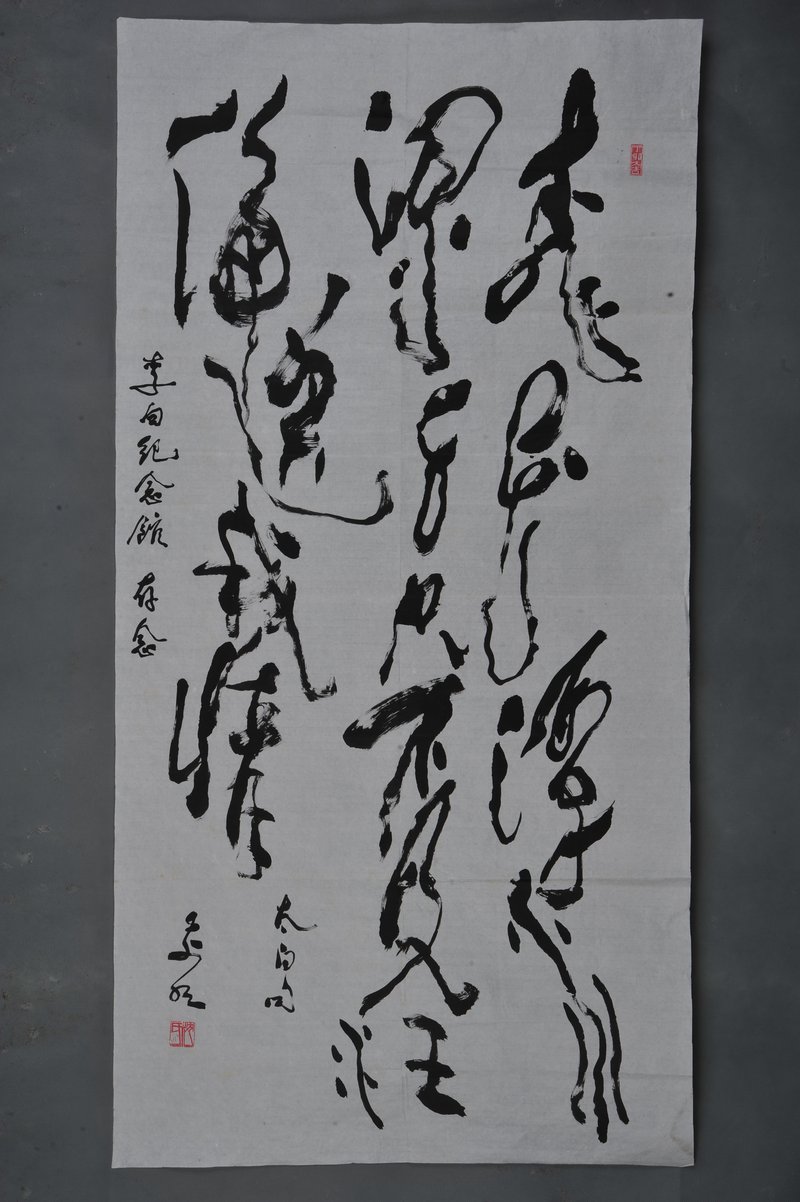 桃花潭水
深千尺不及汪
倫送我情
太白句
李白纪念館 存念